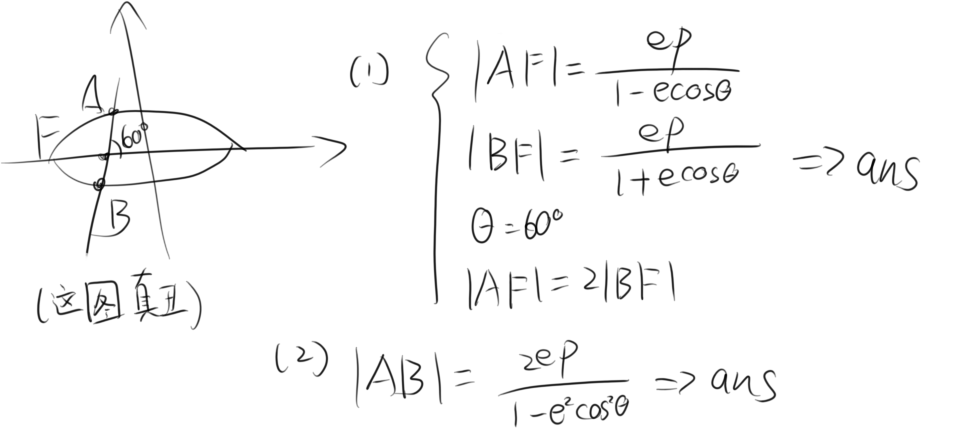 A
F
60°
B
(这图真丑)
(1) { |AF| = ep / (1 - ecosθ)
|BF| = ep / (1 + ecosθ) => ans
θ = 60°
|AF| = 2|BF|
(2) |AB| = 2ep / (1 - e²cos²θ) => ans